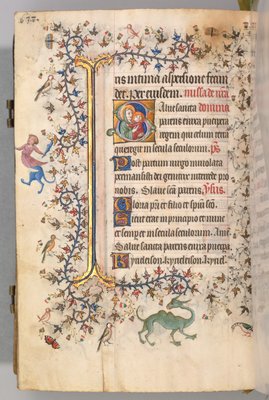 tris intima aspersione fecun
det. Per eundem. missa de nr̄a
Salue sancta domina
parens enixa puerpera
regem qui celum terra
que regit in secula seculorum. ps
Post partum uirgo inuiolata
permansisti dei genitrix intercede pro
nobis. Salue san̄ parens, Vsus.
Gloria pr̄i et filio et spūi sc̄o.
Sicut erat in principio et nunc
et semper et in secula seculorum. Amē
Salue sancta parens enixa puerpa.
Kyrieleison. kyrieleison. kyriel.